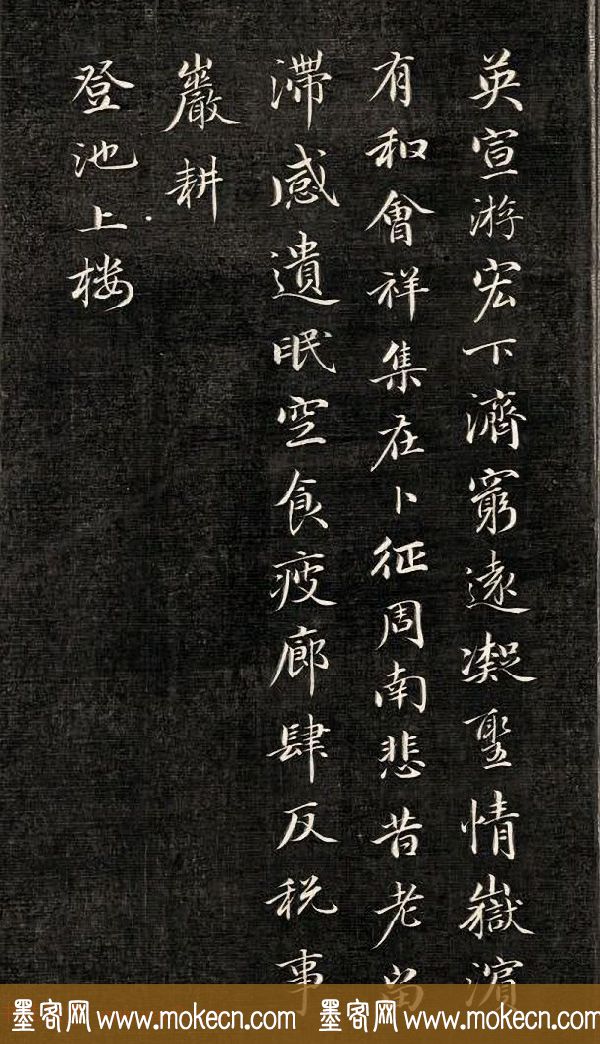 英宣游宏下濟窮遠凝聖情嶽濱
有和會祥集在卜征周南悲昔老留
滯感遺眠空食疲廊肆反税事
巖耕
登池上楼
墨客网 www.mokecn.com 墨客网 www.mokecn.com